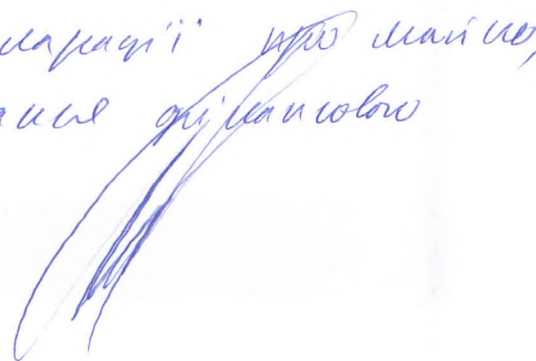 ларації про майно,
ання фінансового